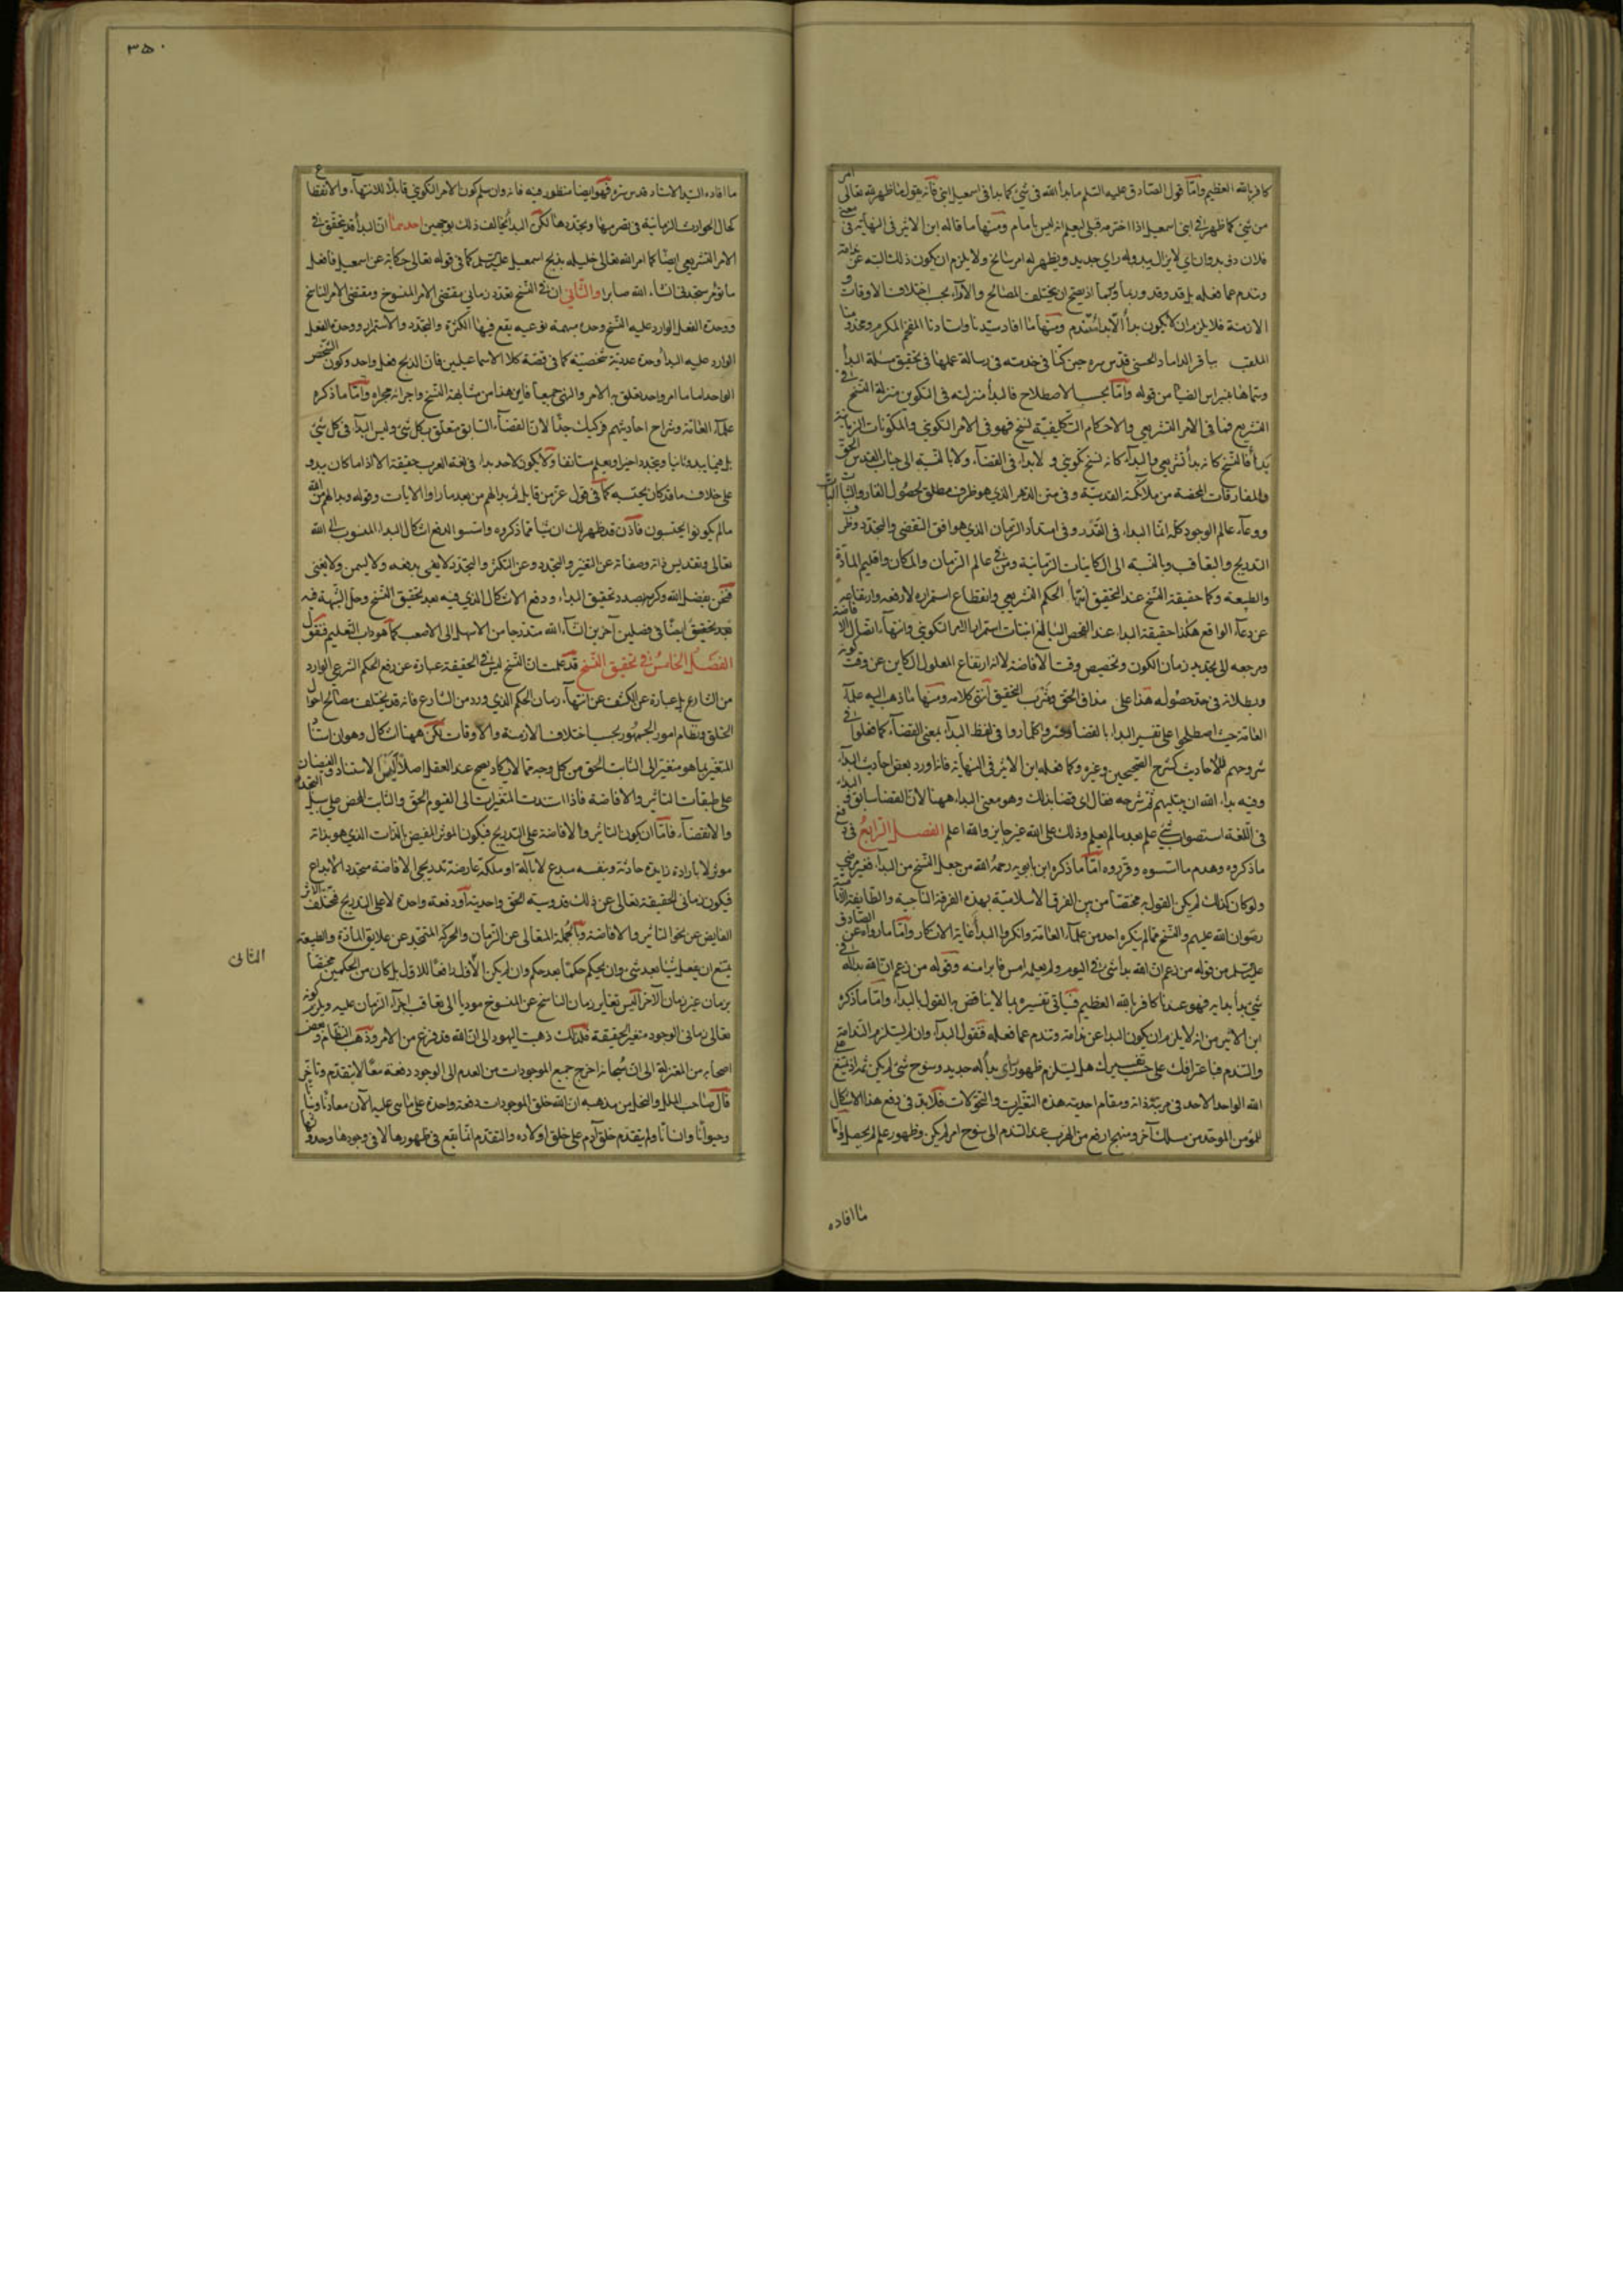 كافر بالله العظيم وامّا قول الصّادق عليه السّلم ما بدأ الله فى شئ كما بدا فى اسمعيل ابنى فانّه يقول ما ظهر لله تعالى امر
من شئ كما ظهر فى ابنى اسمعيل اذا اخترمه قبلى ليعلم انه ليس بامام ومنها ما قاله ابن الاثير فى النهاية فى معنى
فلان ذو بدوان اى لا يزال يبدو له راى جديد ويظهر له امر سانح ولا يلزم ان يكون ذلك البتّه عن ندامة
وتندم عما فعله بل قد وقد وربما وربما اذ يصح ان يختلف المصالح والآراء بحسب اختلاف الاوقات و
الازمنة فلا يلزم ان لا يكون بدأ الّا بدأ تندم ومنها ما افاد سيّدنا واستادنا المفخم المكرم ومخدومنا
الملقب بباقر الداماد الحسنى قدّس سره حين كنّا فى خدمته فى رسالة عملها فى تحقيق مسئلة البدأ
وسمّاها نبراس الضيا من قوله وامّا بحسب الاصطلاح فالبدأ منزلته فى التكوين منزلة النسخ فى
التشريع فما فى الامر التشريعى والاحكام التكليفيّة نسخ فهو فى الامر التكوينى والمكونات الزمانية
بدأ فالنسخ كانه بدأ تشريعى والبدآء كانه نسخ تكوينى ولا بداء فى القضآء ولا بالنسبة الى جناب القدس الحق
والمفارقات المحضة من ملائكته القدسيّة وفى متن الدهر الذى هو ظرف مطلق الحصول القار والثبات البات
ووعآء عالم الوجود كلّه انّما البداء فى القدر وفى امتداد الزمان الذى هو افق التقضى والتجدّد وظرف
التدريج والتعاقب وبالنسبة الى الكاينات الزمانية ومن فى عالم الزمان والمكان واقليم المادة
والطبيعة وكما حقيقة النسخ عند التحقيق انتهاء الحكم التشريعى وانقطاع استمراره لا رفعه وارتفاعه
عن وعآء الواقع فكذا حقيقة البداء عند الفحص البالغ انبتات استمرار الامر التكوينى وانتهآء اتصال الافاضة
ومرجعه الى تحديد زمان الكون وتخصيص وقت الافاضة لا انه ارتفاع المعلول الكاين عن وقت كونه
وبطلانه فى حد حصوله هذا على مذاق الحق ومشرب التحقيق انتهى كلامه ومنها ما ذهب اليه علمآء
العامّة حيث اصطلحوا على تفسير البداء بالقضا وفسروا كلما روا فى لفظ البدآء بمعنى القضآء كما فعلوا فى
شروحهم للاحاديث كشرح الصحيحين وغيره وكما فعله ابن الاثير فى النهاية فانه اورد بعض احاديث البدآء
وفيه بداء الله ان يبتليهم ثم شرحه فقال اى قضا بذلك وهو معنى البداء ههنا لان القضا سابق و البداء
فى اللّغة استصواب شئ علم بعد ما لم يعلم وذلك على الله غير جايز والله اعلم الفصل الرّابع فى دفع
ما ذكروه وهدم ما اسّسوه وقرّروه امّا ما ذكره ابن بابويه رحمه الله من جعل النسخ من البدآء فغير مرضى
ولو كان كذلك لم يكن القول به مختصّا من بين الفرق الاسلاميّة بهذه الفرقة الناجية والطايفة الاماميّة
رضوان الله عليهم والنسخ مما لم ينكره احد من علمآء العامّة وانكروا البدأ غاية الانكار وامّا ما رواه عن الصّادق
عليه السلم من قوله من زعم ان الله بدأ شئ فى اليوم ولم يعلمه امس فابرا منه وقوله من زعم انّ الله بدا له فى
شئ بدا ندامة فهو عندنا كافر بالله العظيم فسياتى تفسيره بما لا يناقض به القول بالبدآء وامّا ما ذكره
ابن الاثير من انه لا يلزم ان يكون البداء عن ندامة وتندم عما فعله فنقول البدآء وان لم يستلزم الندامة
والتندم فباعترافك على حسب تفسيرك هل يستلزم ظهور راى بدأ له جديد وسنوح شئ لم يكن
الله الواحد الاحد فى مرتبة ذاته ومقام احديته هذه التغيّرات والتحوّلات فلا بد فى دفع هذا الاشكال
للمؤمن الموحّد من مسلك آخر ومنهج ارفع من الهرب عن التندم الى سنوح امر لم يكن وظهور علم لم يحصل وامّا
ما افاده
٣٥٠
ما افاده السيّد الاستاد قدس سره فهو ايضا منظور فيه فانه وان سلم كون الامر التكوينى قابلا للانتهآء والانقطاع
كحال الحوادث الزمانية فى تصرمها وتجدّدها لكن البدأ يخالف ذلك بوجهين احدهما انّ البدأ قد يتحقّق فى
الامر التشريعى ايضا كما امر الله تعالى خليله بذبح اسمعيل عليه السلم كما فى قوله تعالى حكاية عن اسمعيل فافعل
ما تؤمر ستجدنى انشاء الله صابرا والثّانى ان فى النّسخ تعدد زمانى مقتضى الامر المنسوخ ومقتضى الامر الناسخ
ووحدة الفعل الوارد عليه النسخ وحدة مبهمة نوعيه يقع فيها الكثرة والتجدّد والاستمرار ووحدة الفعل
الوارد عليه البدأ وحدة عدديّة شخصيّة كما فى قصّة كلا الاسماعيلين فان الذبح فعل واحد وكون الشّخص
الواحد اماما امر واحد تعلق به الامر والنهى جميعا فاين هذا من مشابهة النسخ واجرائه مجراه وامّا ما ذكره
علمآء العامّة وشراح احاديثهم فركيك جدّا لان القضآء السّابق متعلّق بكل شئ وليس البدآء فى كل شئ
بل فيما يبدو ثانيا ويتجدد اخيرا ويعلم مستانفا ولا يكون لاحد بداء فى لغة العرب حقيقة الا اذا ما كان يبدو
على خلاف ما قد كان يحتسبه كما فى قول عزّ من قايل ثم بدا لهم من بعد ما راوا الآيات وقوله وبدا لهم من الله
ما لم يكونوا يحتسبون فاذن قد ظهر لك ان شيأ مما ذكروه واسّسوا لدفع اشكال البداء المنسوب الى الله
تعالى وتقديس ذاته وصفاته عن التغيّر والتجدد وعن التكثّر والتجدّد لا يفى بدفعه ولا يسمن ولا يغنى
فنحن بفضل الله وكرمه بصدد تحقيق البداء ودفع الاشكال الذى فيه بعد تحقيق النسخ وحلّ الشبهة فيه
فى فصلين آخرين انشآء الله متدرجا من الاسهل الى الاصعب كما هو داب التعليم فنقول
الفصل الخامس فى تحقيق النّسخ قد علمت ان النّسخ ليس فى الحقيقة عبارة عن رفع الحكم الشرعى الوارد
من الشارع بل عبارة عن الكشف عن انتهآء زمان الحكم الذى ورد من الشارع فانه قد يختلف مصالح احوال
الخلق ونظام امور الجمهور بحسب اختلاف الازمنة والاوقات لكن ههنا اشكال وهو ان استناد
المتغيّر بما هو متغيّر الى الثابت الحق من كل وجه مما لا يكاد يصح عند العقل اصلا الاستناد والفيضان
على طبقات التاثير والافاضة فاذا استندت المتغيّرات الى القيوم الحقّ والثابت المحض على سبيل التجدّد
والانقضآء فامّا ان يكون التاثير والافاضة على التدريج فيكون المؤثر المفيض بالذات الذى هو بذاته
مؤثر لا بارادة زايدة حادثة وبنفسه مبدع لا بآلة او ملكة عارضة تدريجى الافاضة متجدد الابداع
فيكون زمانى الحقيقة تعالى عن ذلك قدوسية الحقّ واحديته او دفعة واحدة لا على التدريج فتختلف الاثر
الفايض عن نحو التاثير والافاضة وبالجملة المتعالى عن الزمان والحركة المتجرّد عن علايق المادّة والطبيعة
يمتنع ان يفعل شيئا بعد شئ وان يحكم حكما بعد حكم وان لم يكن الاول رافعا للاول بل كان من الحكمين مختصّا
بزمان غير زمان الآخر اليس تغاير زمان الناسخ عن المنسوخ موديا الى تعاقب اجزآء الزمان عليه ويلزم كونه
تعالى زمانى الوجود متغيّر الحقيقة فلذلك ذهبت اليهود الى انّ الله قد فرغ من الامر وذهب النظام وبعض
اصحابه من المعتزلة الى انّه سبحانه اخرج جميع الموجودات من العدم الى الوجود دفعة معّا لا بتقدّم وتاخّر
قال صاحب الملل والنحل من مذهبه ان الله خلق الموجودات دفعة واحدة على ما هى عليه الآن معادنا ونباتا
وحيوانا وانسانا ولم يتقدم خلق آدم على خلق اولاده والتقدّم انّما يقع فى ظهورها لا فى وجودها وحدوثها
الثانى